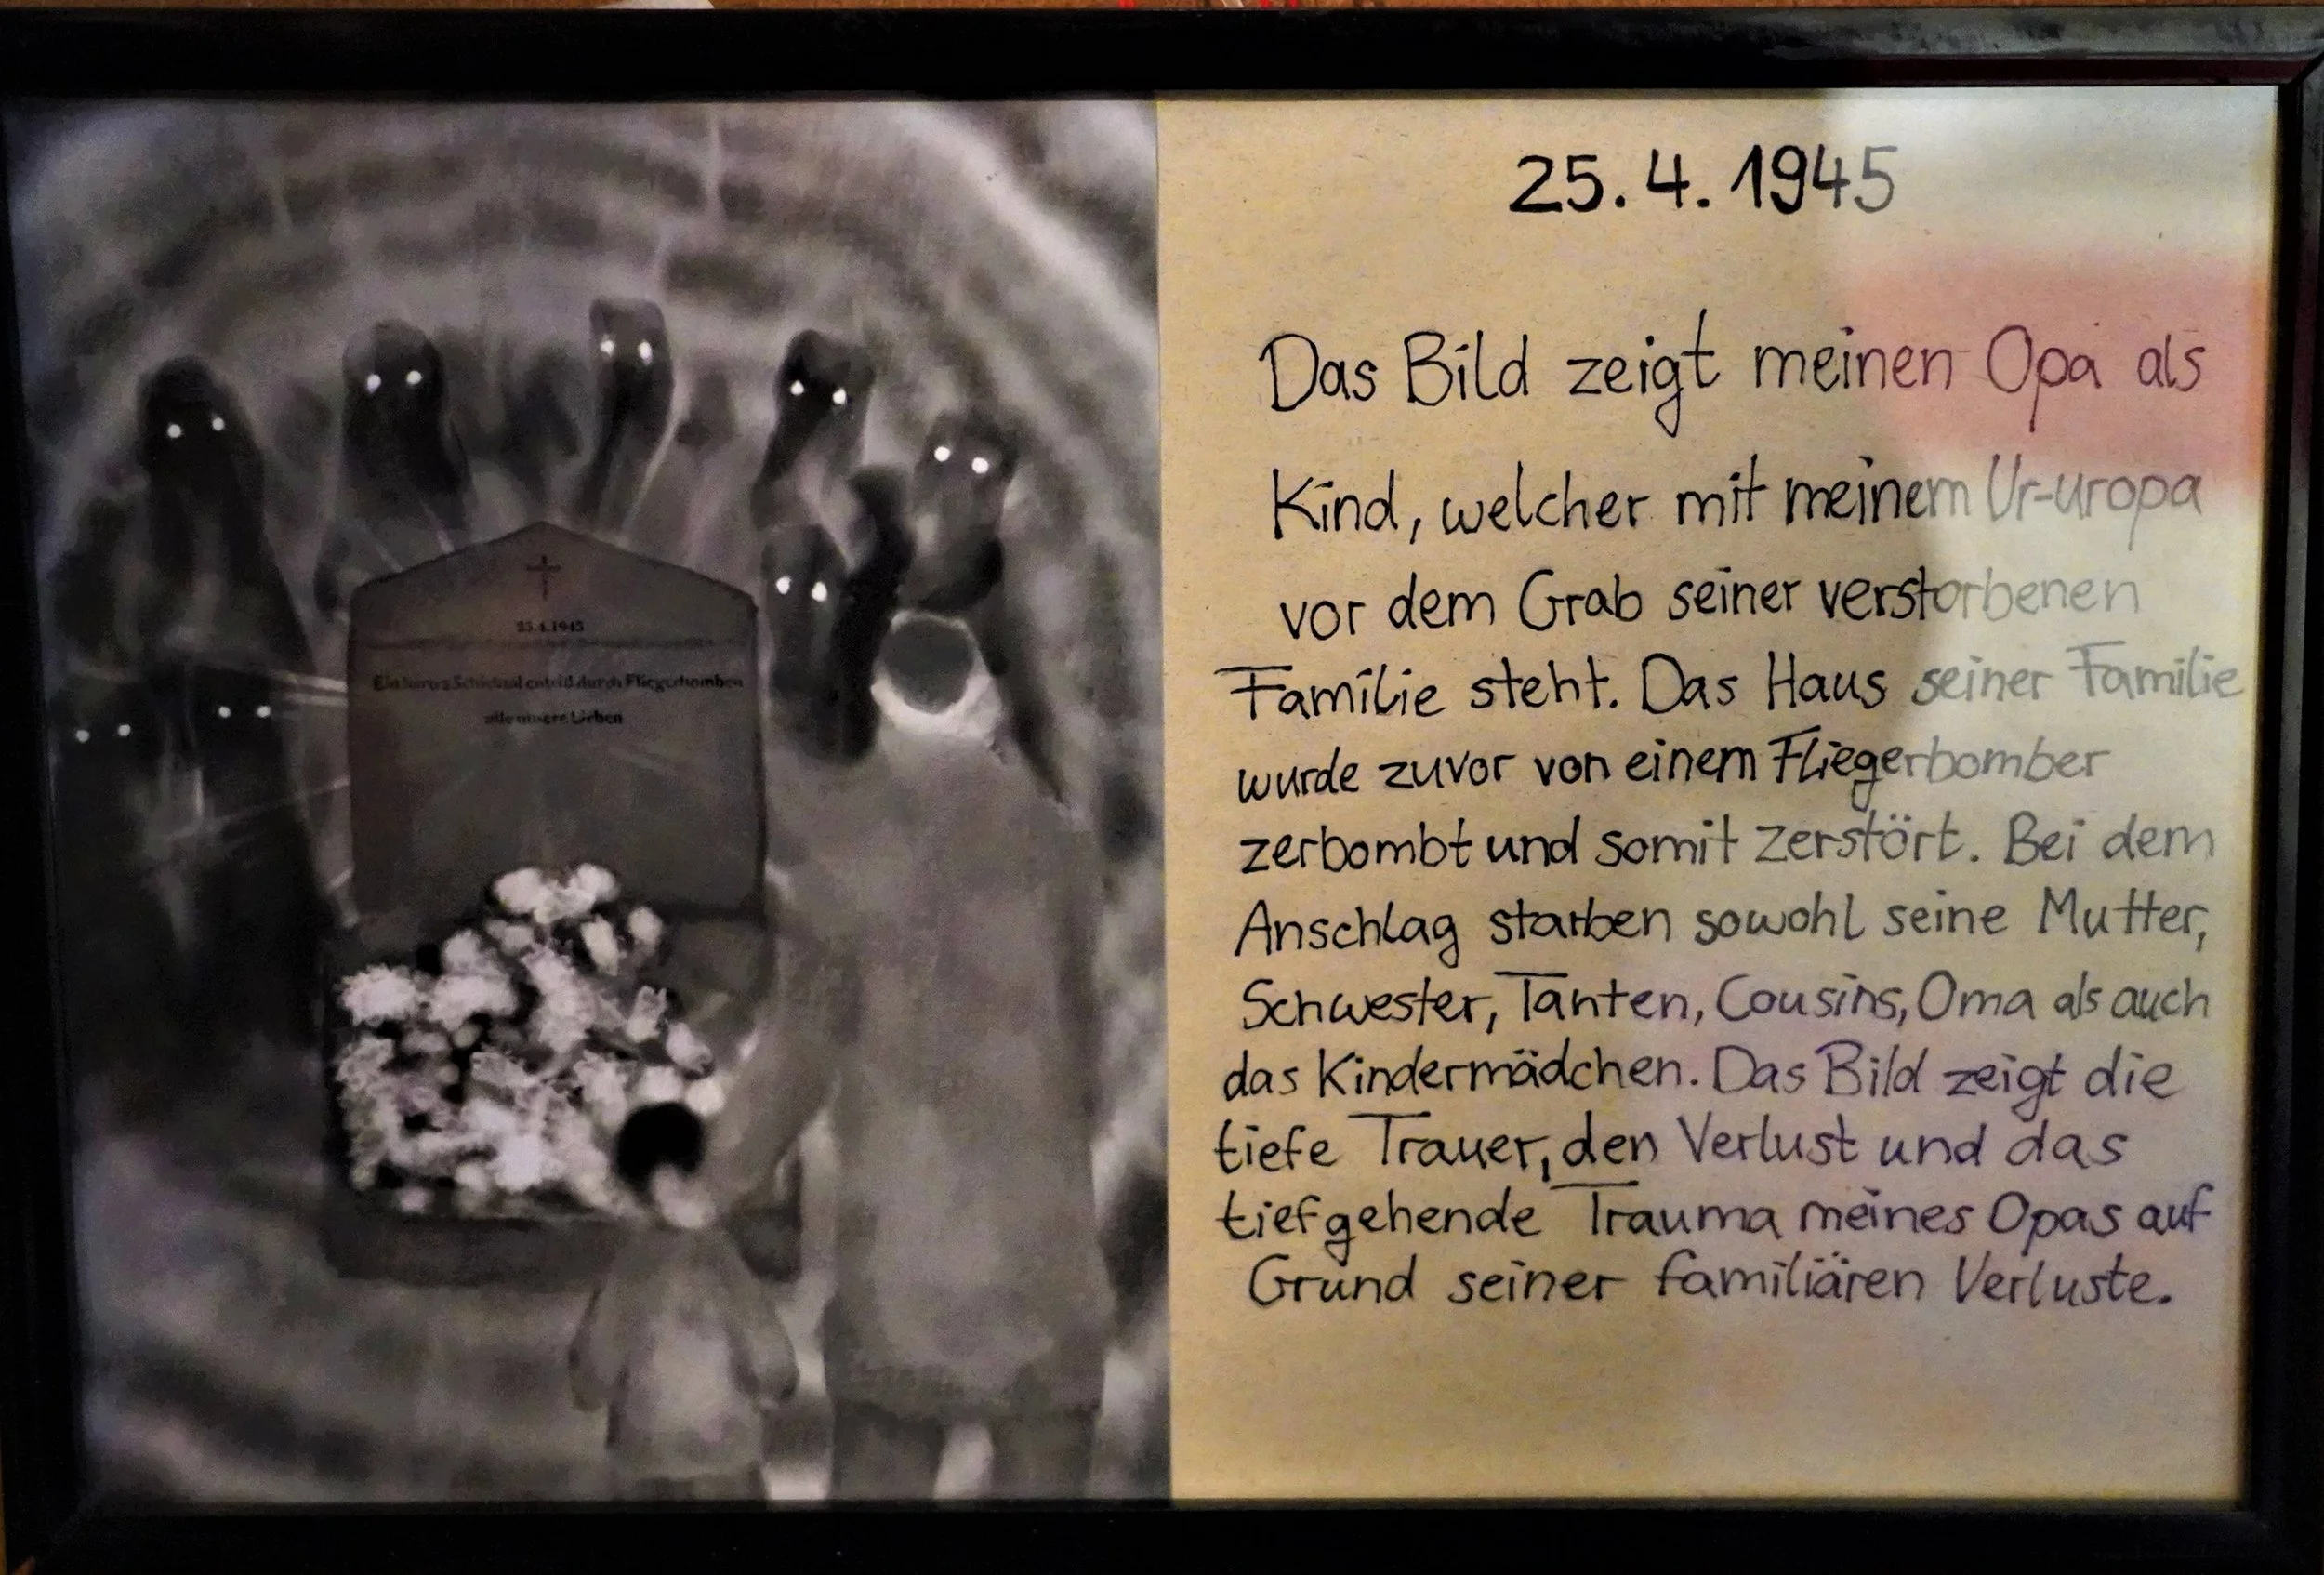 25.4.1945
Ein hartes Schicksal entriß durch Fliegerbomben
alle unsere Lieben
25.4.1945
Das Bild zeigt meinen Opa als
Kind, welcher mit meinem Ur-uropa
vor dem Grab seiner verstorbenen
Familie steht. Das Haus seiner Familie
wurde zuvor von einem Fliegerbomber
zerbombt und somit zerstört. Bei dem
Anschlag starben sowohl seine Mutter,
Schwester, Tanten, Cousins, Oma als auch
das Kindermädchen. Das Bild zeigt die
tiefe Trauer, den Verlust und das
tiefgehende Trauma meines Opas auf
Grund seiner familiären Verluste.